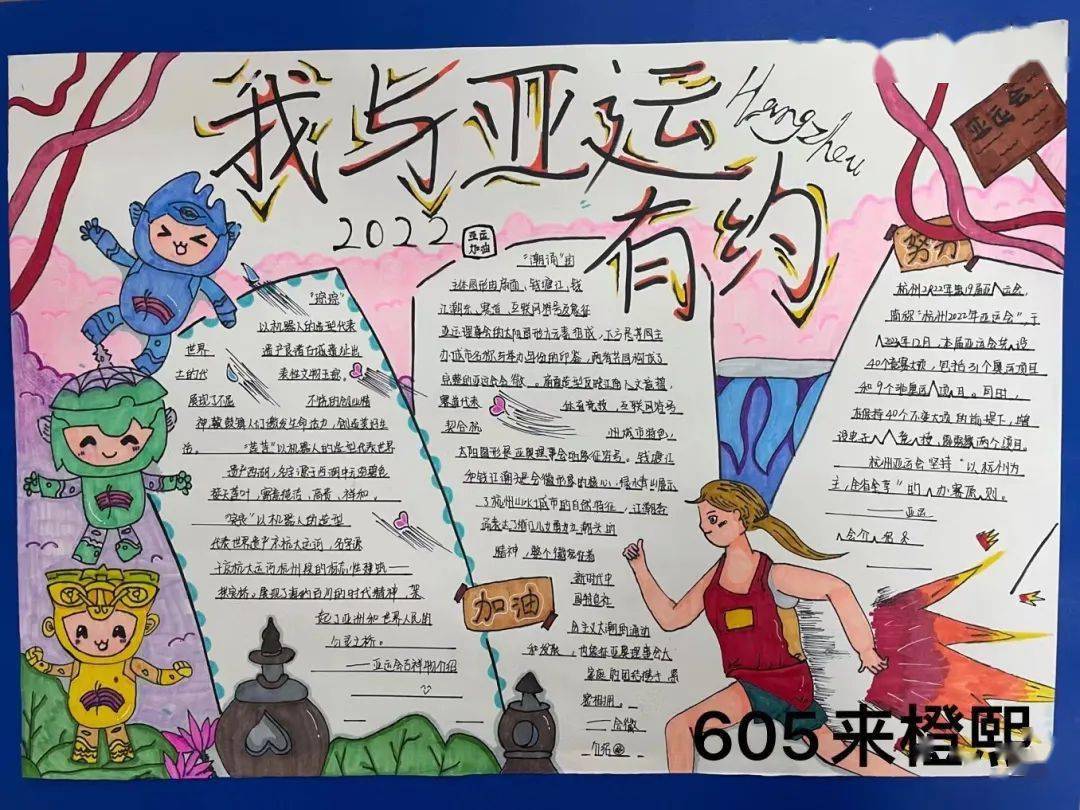 我与亚运
有约
Hangzhou
2022
亚运
加油
亚运会
努力
加油
"琮琮"
以机器人的造型代表
世界
遗产良渚古城遗址出
土的时代
表性文物玉琮。
展现了不屈
不挠的创业精
神,鼓励人们激发生命活力,创造美好生
活。
"莲莲"以机器人的造型代表世界
遗产西湖,名字源于西湖中无穷碧色
接天莲叶,寓意纯洁、高贵、祥和。
"宸宸"以机器人的造型
代表世界遗产京杭大运河,名字源
于京杭大运河杭州段的标志性建筑——
拱宸桥。展现了海纳百川的时代精神,架
起了亚洲和世界人民的
心灵之桥。
——亚运会吉祥物介绍
"潮涌"的
主体图形由扇面、钱塘江、钱
江潮头、赛道、互联网符号及象征
亚运理事会的太阳图形六元素组成,下方是其周主
办城市名称与举办年份的印鉴,两者共同构成了
完整的亚运会会徽。扇面造型反映江南人文意蕴,
赛道代表
体育竞技,互联网符号
契合杭
州城市特色,
太阳图形是亚奥理事会的象征符号。钱塘江
和钱江潮头是会徽形象的核心,绿水青山展示
了杭州山水城市的自然特征,江潮奔
涌表达了浙江儿女勇立潮头的
精神,整个徽意征着
新时代中
国特色社
会主义大潮的涌动
和发展,
也象征亚奥理事会大
家庭的团结携手、紧
密相拥。
——会徽
介绍
杭州2022年第19届亚运会,
简称"杭州2022年亚运会",于
40个竞赛大项,包括31个奥运项目
和9个非奥运项目。同时,
在维持40个大项大项的前提下,增
设电子竞技、霹雳舞两个项目。
杭州亚运会坚持"以杭州为
主,全省共享"的办赛原则。
——亚运
会介绍
605来橙熙